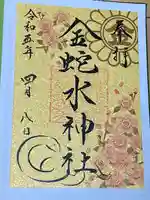 奉行
金蛇水神社
令和五年
四月
八日